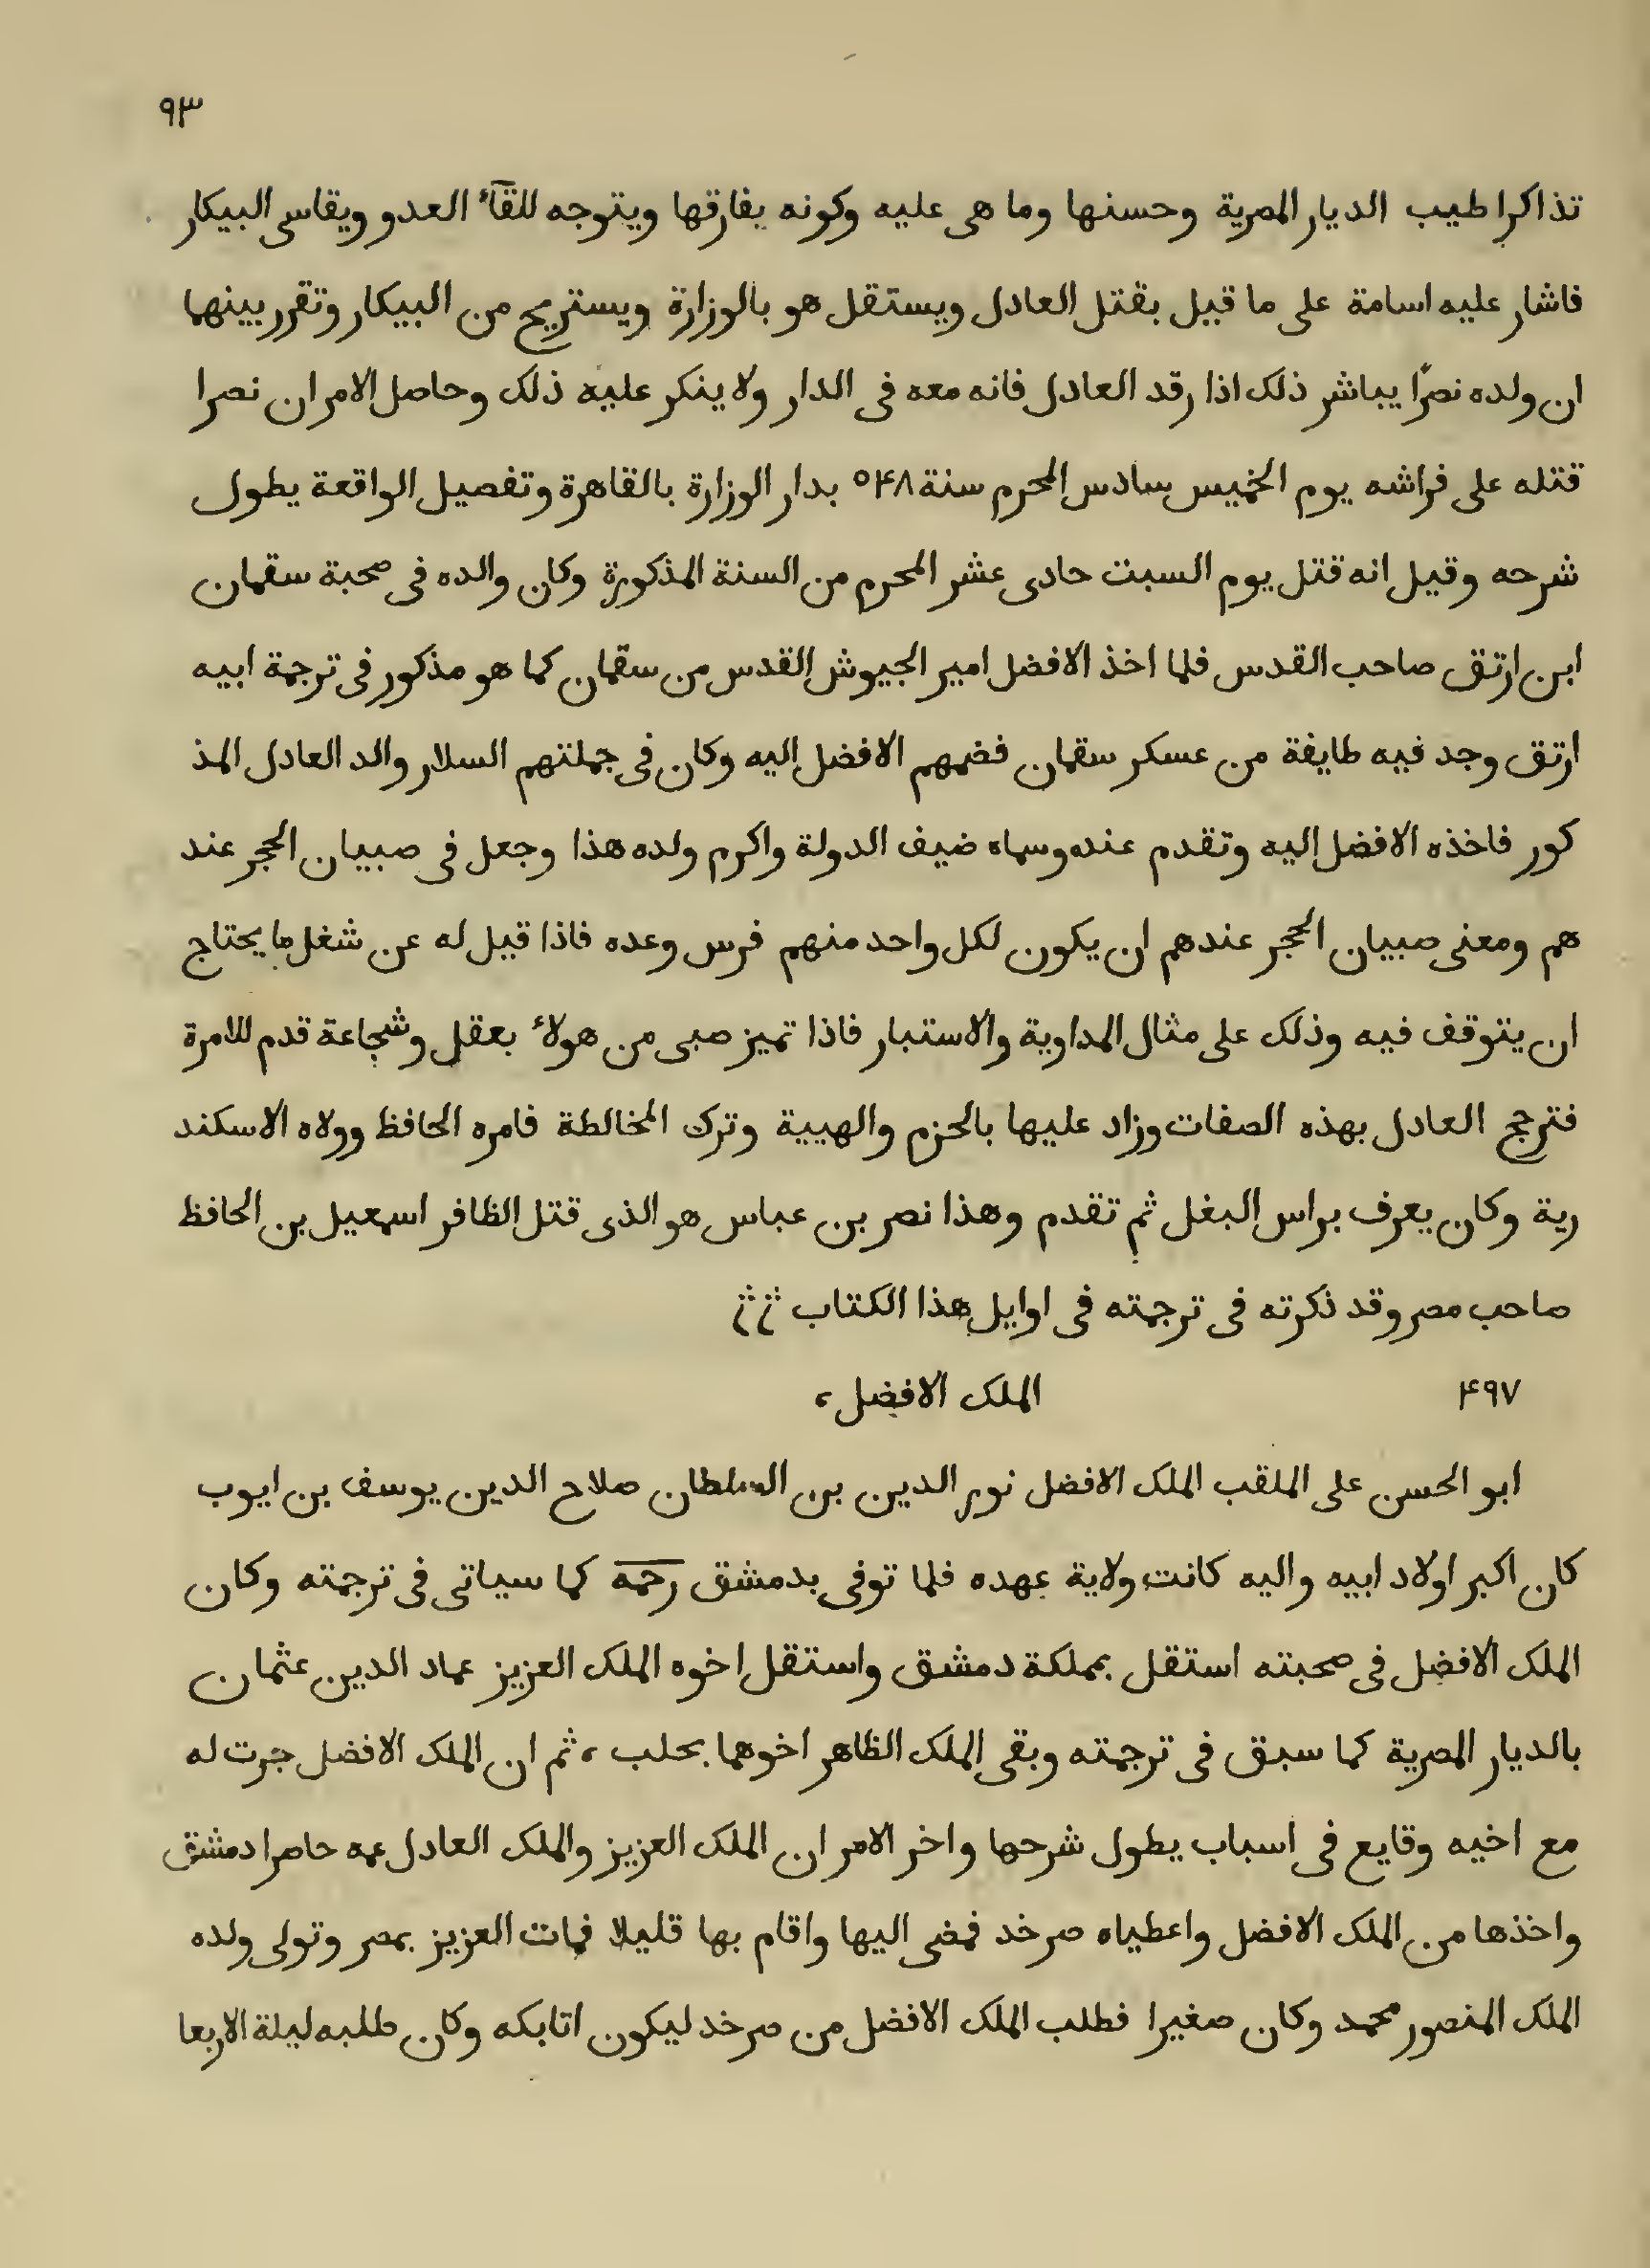 ٩٣
تذاكرا طيب الديار المصرية وحسنها وما هى عليه وكونه يفارقها ويتوجه للقآء العدو ويقاسى البيكار
فاشار عليه اسامة على ما قيل بقتل العادل ويستقل هو بالوزارة ويستريح من البيكار وتقرر بينهما
ان ولده نصرًا يباشر ذلك اذا رقد العادل فانه معه فى الدار ولا ينكر عليه ذلك وحاصل الامر ان نصرا
قتله على فراشه يوم الخميس سادس المحرم سنة ٥۴٨ بدار الوزارة بالقاهرة وتفصيل الواقعة يطول
شرحه وقيل انه قتل يوم السبت حادى عشر المحرم من السنة المذكورة وكان والده فى صحبة سقمان
ابن ارتق صاحب القدس فلما اخذ الافضل امير الجيوش القدس من سقمان كما هو مذكور فى ترجمة ابيه
ارتق وجد فيه طايفة من عسكر سقمان فضمهم الافضل اليه وكان فى جملتهم السلار والد العادل المذ
كور فاخذه الافضل اليه وتقدم عنده وسماه ضيف الدولة واكرم ولده هذا وجعل فى صبيان الحجر عند
هم ومعنى صبيان الحجر عندهم ان يكون لكل واحد منهم فرس وعده فاذا قيل له عن شغل ما يحتاج
ان يتوقف فيه وذلك على مثال المداوية والاستبار فاذا تميز صبى من هولاء بعقل وشجاعة قدم للامرة
فترجح العادل بهذه الصفات وزاد عليها بالحزم والهيبة وترك المخالطة فامره الحافظ وولاه الاسكند
رية وكان يعرف براس البغل ثم تقدم وهذا نصر بن عباس هو الذى قتل الظافر اسمعيل بن الحافظ
صاحب مصر وقد ذكرته فى ترجمته فى اوايل هذا الكتاب
۴٩٧ الملك الافضل،
ابو الحسن على الملقب الملك الافضل نور الدين بن السلطان صلاح الدين يوسف بن ايوب
كان اكبر اولاد ابيه واليه كانت ولاية عهده فلما توفى بدمشق رحمه كما سياتى فى ترجمته وكان
الملك الافضل فى صحبته استقل بمملكة دمشق واستقل اخوه الملك العزيز عماد الدين عثمان
بالديار المصرية كما سبق فى ترجمته وبقى الملك الظاهر اخوهما بحلب، ثم ان الملك الافضل جرت له
مع اخيه وقايع فى اسباب يطول شرحها واخر الامر ان الملك العزيز والملك العادل عمه حاصرا دمشق
واخذها من الملك الافضل واعطياه صرخد فمضى اليها واقام بها قليلا فمات العزيز بمصر وتولى ولده
الملك المنصور محمد وكان صغيرا فطلب الملك الافضل من صرخد ليكون اتابكه وكان طلبه ليلة الاربعا